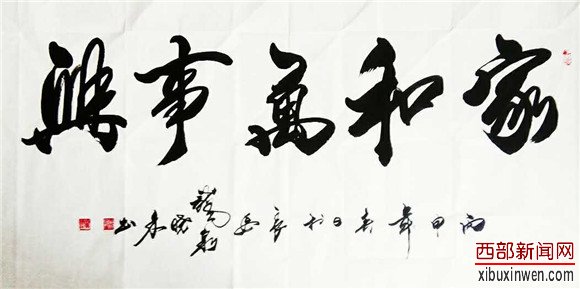 家和萬事興
丙申年春日於京 书
西部新闻网
xibuxinwen.com